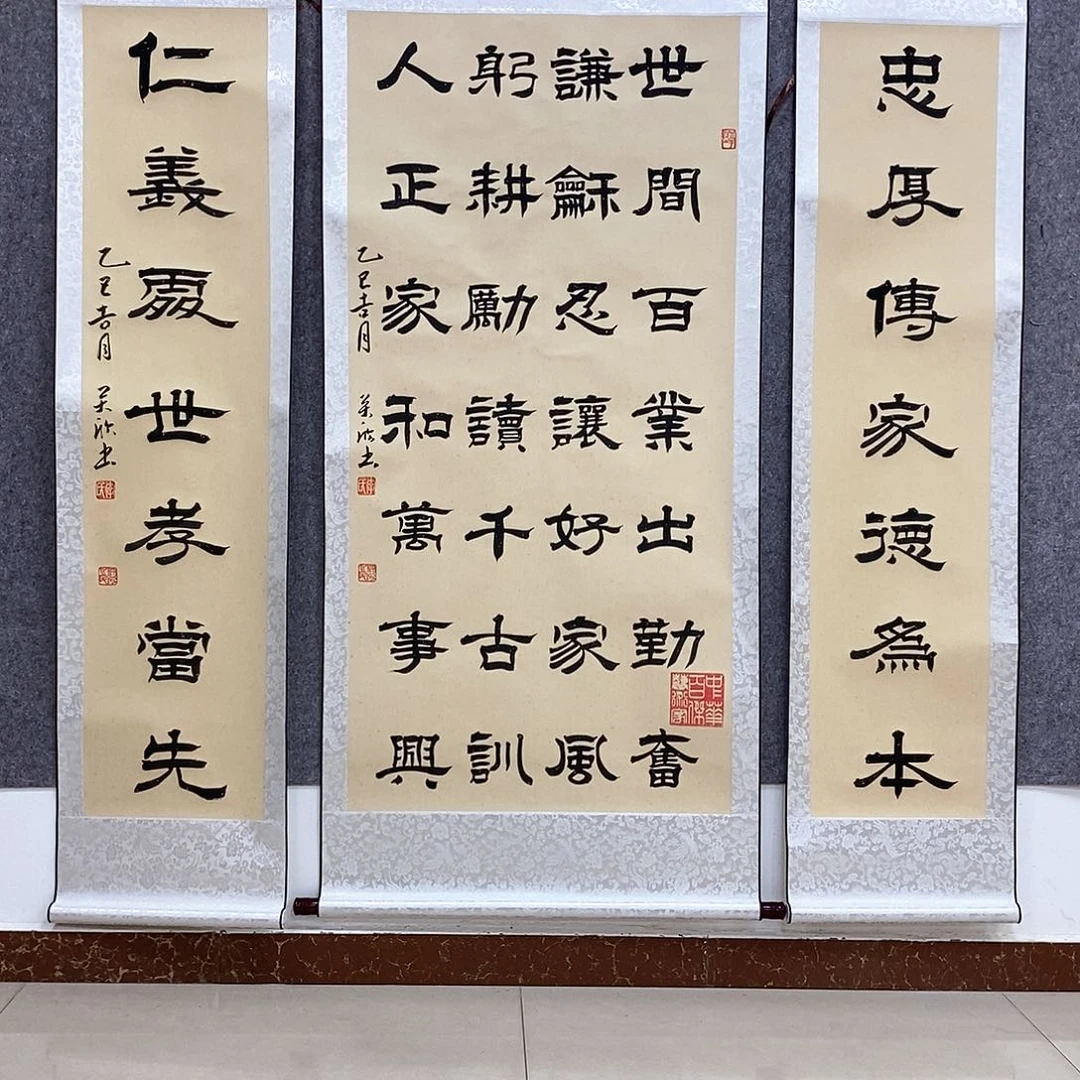 忠厚傳家德為本
世間百業出勤奮
謙龢忍讓好家風
躬耕勵讀千古訓
人正家和萬事興
乙巳吉月
中華
百傑
仁義處世孝當先
乙巳吉月